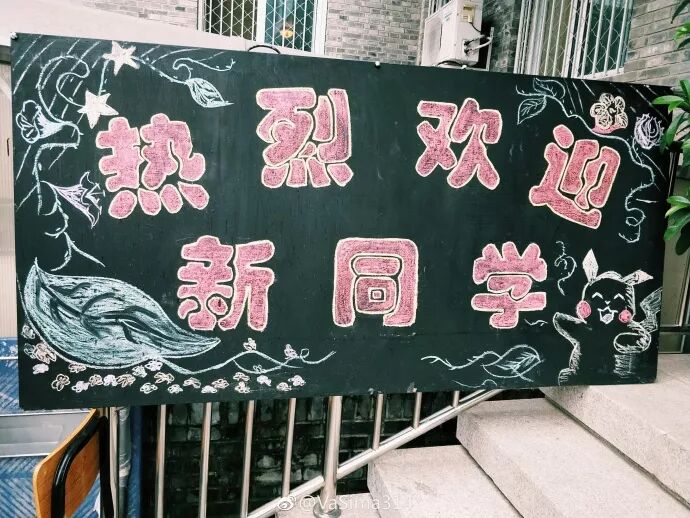 热烈欢迎
新同学
@VaSima31